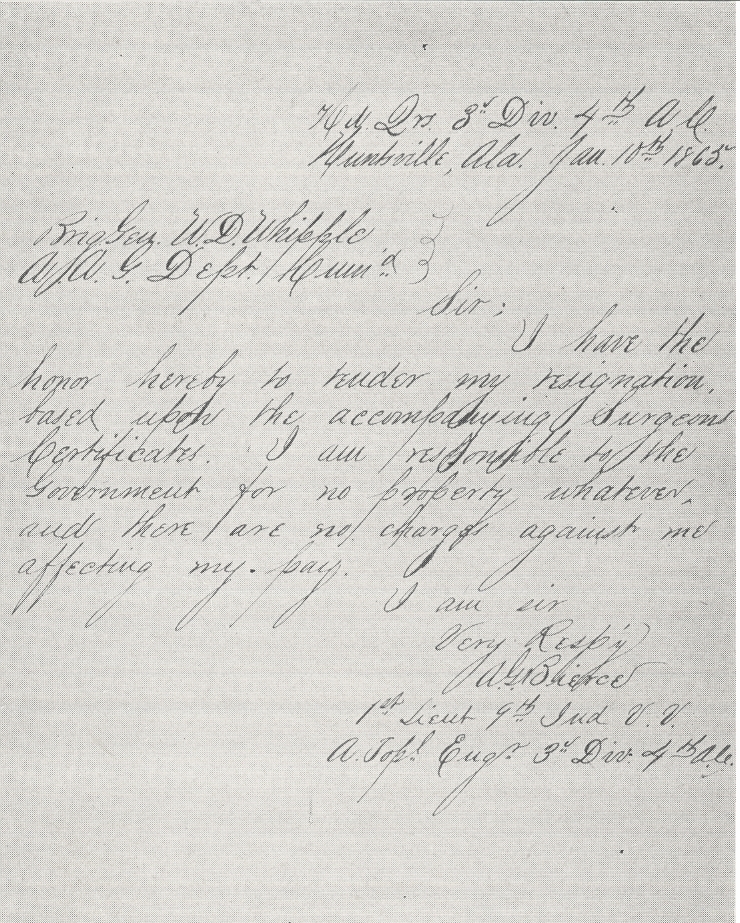 Hd. Qrs. 3d Div. 4th A.C.
Huntsville, Ala. Jan. 10th 1865.
Brig Gen. W.D. Whipple
A.A.G. Dept. Cumd
Sir;
I have the
honor hereby to tender my resignation,
based upon the accompanying Surgeons
Certificates. I am responsible to the
Government for no property whatever,
and there are no charges against me
affecting my pay.
I am sir
Very Resp'y
A.G. Bierce
1st Lieut 9th Ind V.V.
A. Topl Engr 3d Div. 4th A.C.